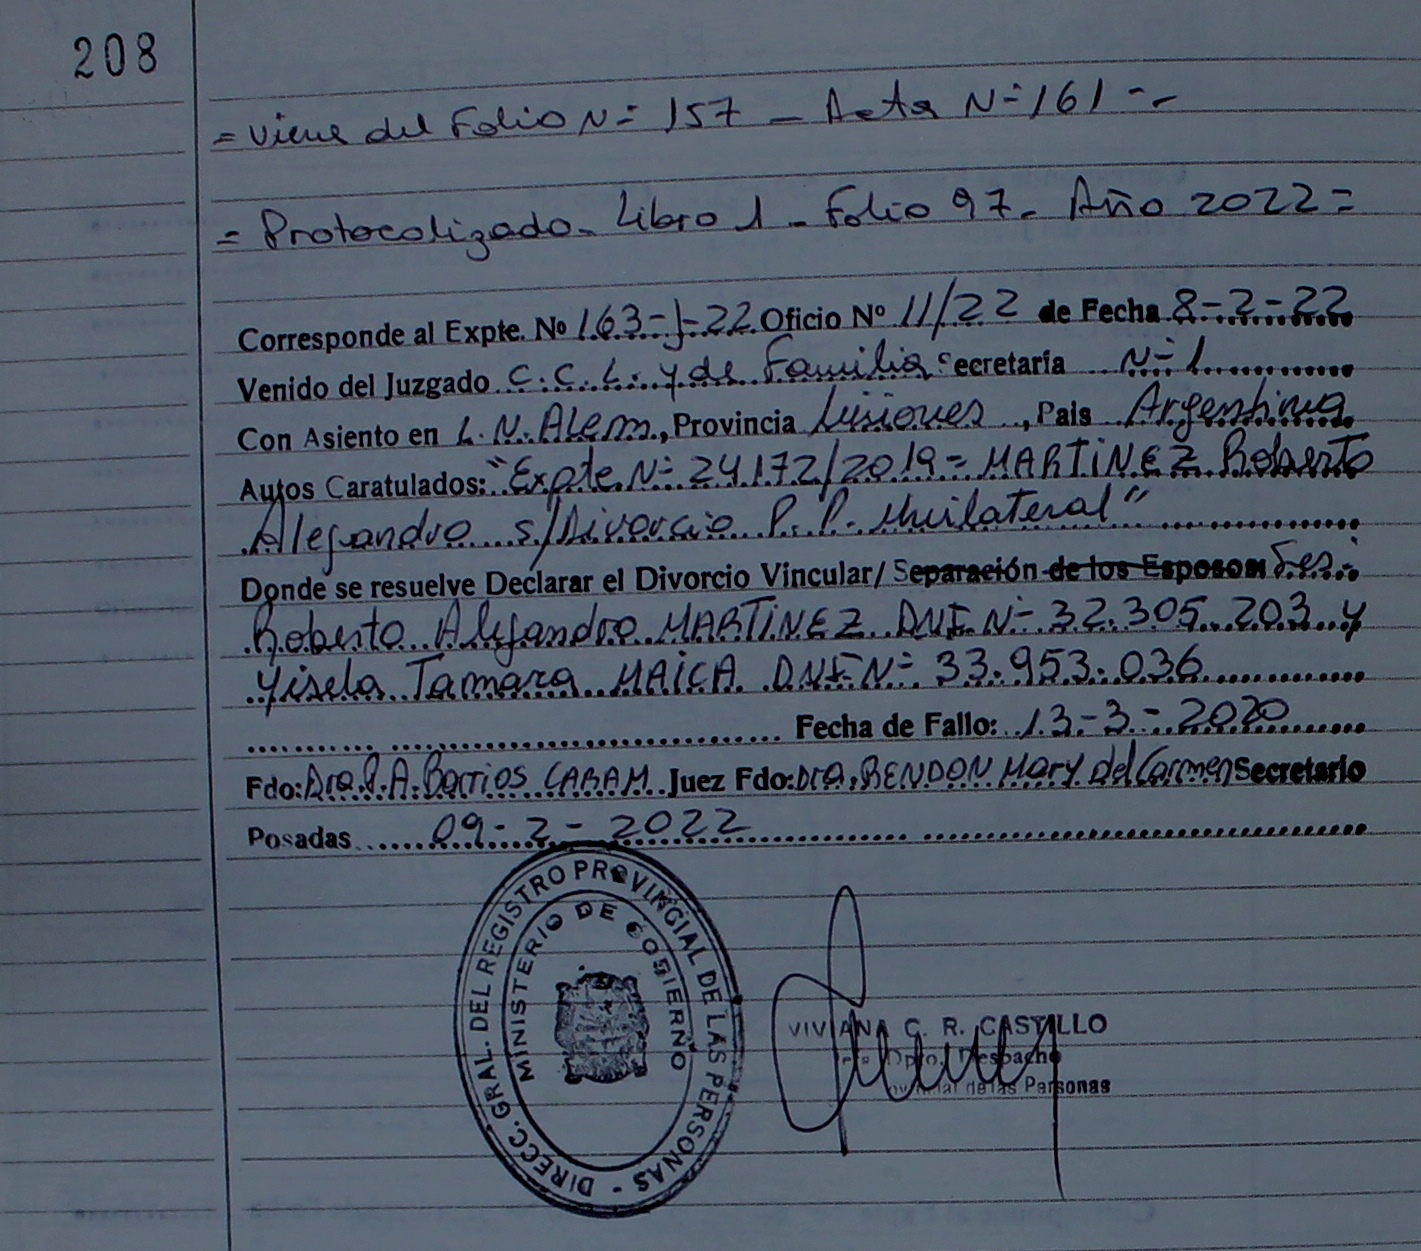 208
= Viene del Folio N= 157 - Acta N=161 --
= Protocolizado - Libro 1 - Folio 97 - Año 2022 =
Corresponde al Expte. Nº 163-J-22 Oficio Nº 11/22 de Fecha 8-2-22
Venido del Juzgado C.C.L. y de Familia Secretaría N=1
Con Asiento en L.N. Alem, Provincia Misiones, Pais Argentina
Autos Caratulados: "Expte N= 24172/2019= MARTINEZ Roberto
Alejandro s/Divorcio P.P. Unilateral"
Donde se resuelve Declarar el Divorcio Vincular/ Separación de los Esposos:
Roberto Alejandro MARTINEZ DNI N= 32.305.203 y
Yisela Tamara MAICA DNI N= 33.953.036
Fecha de Fallo: 13-3-2020
Fdo: Dra. R.A. Barrios CARAM Juez Fdo: Dra. RENDON Mary del Carmen Secretario
Posadas 09-2-2022
DIRECC. GRAL. DEL REGISTRO PROVINCIAL DE LAS PERSONAS -
MINISTERIO DE GOBIERNO
VIVIANA C. R. CASTILLO
Dpto. Despacho
de las Personas